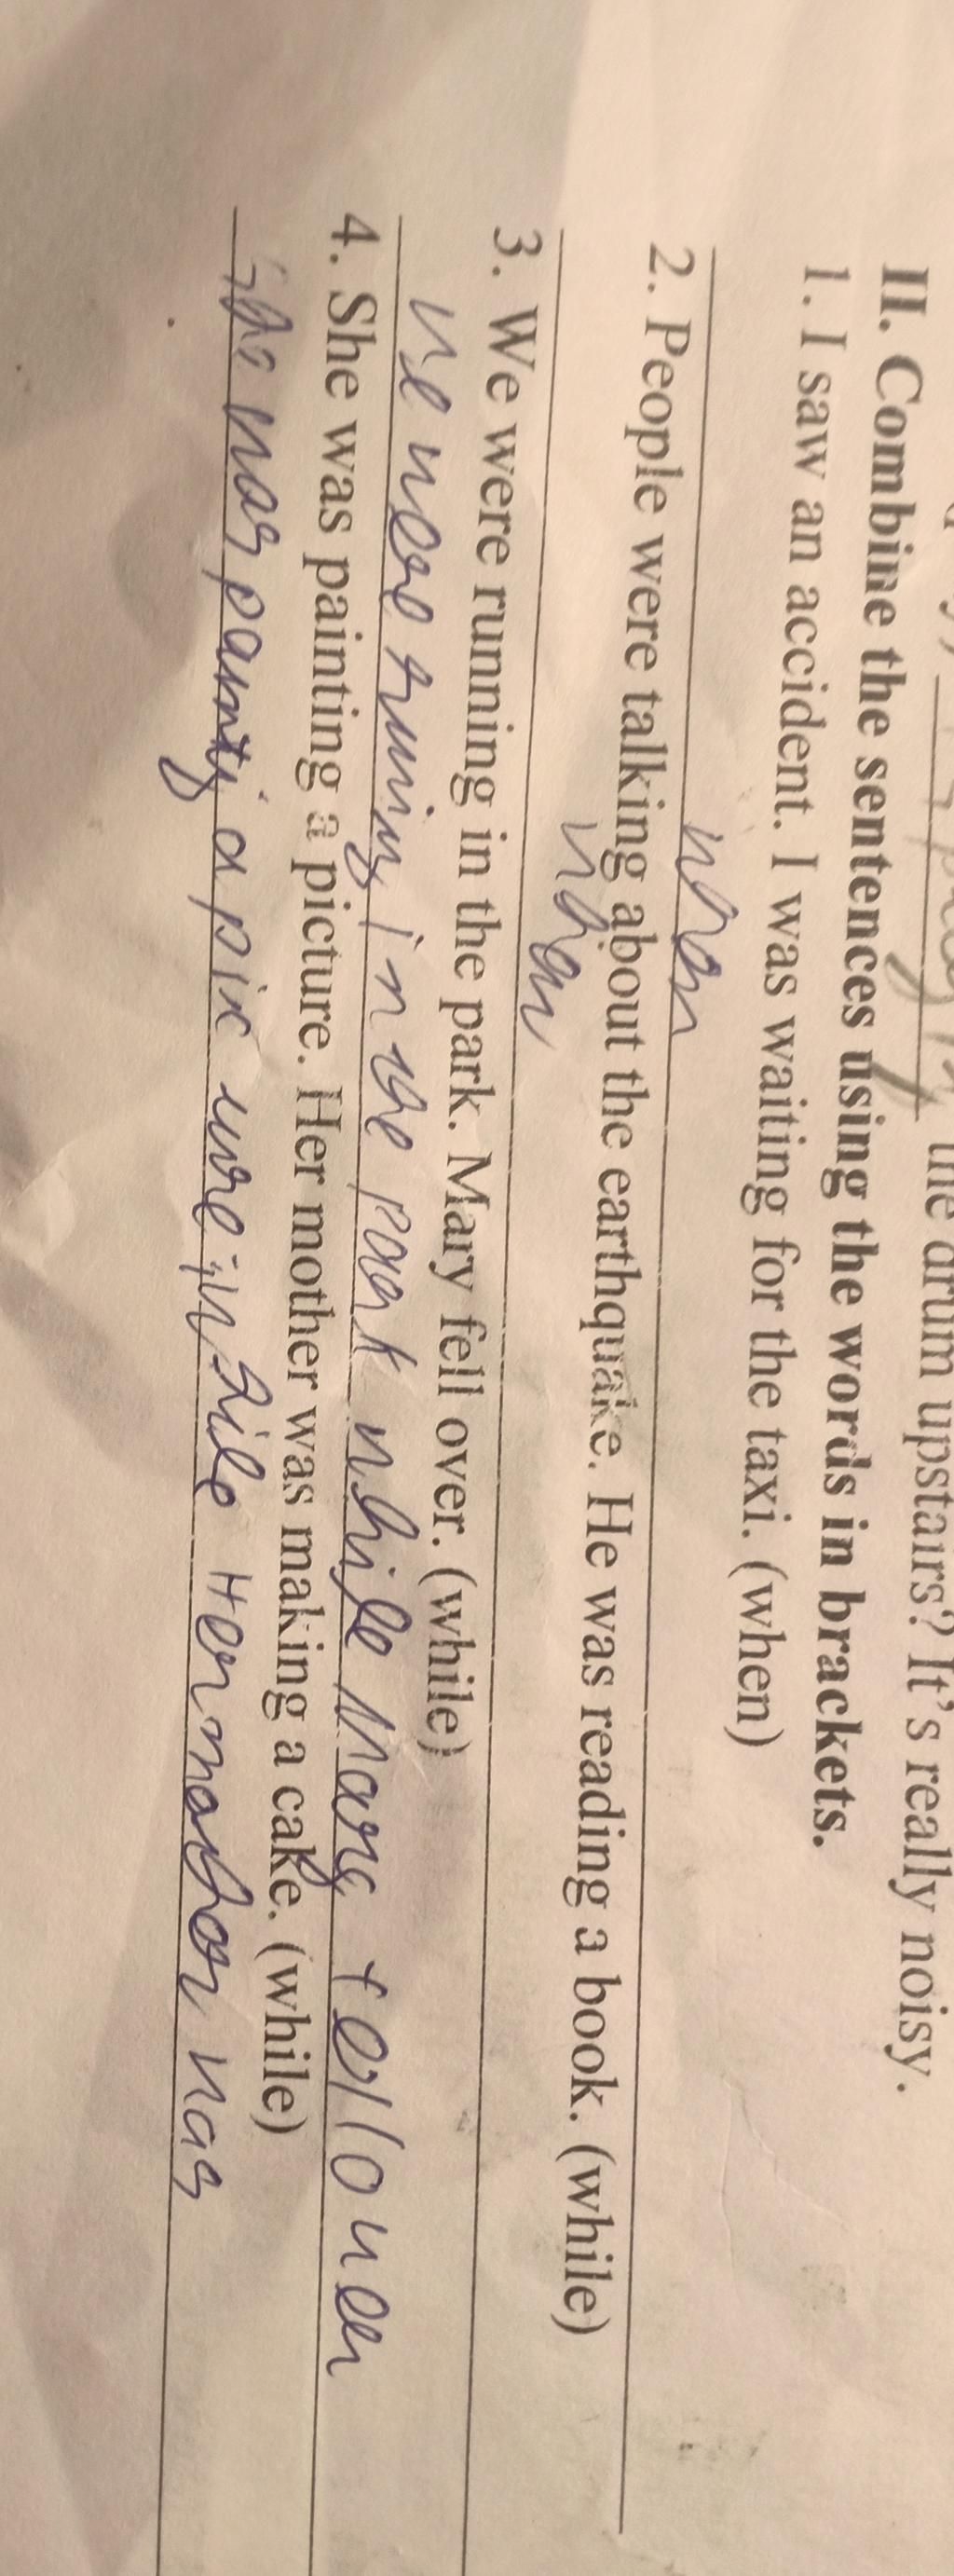 the drum upstairs? It's really noisy.
II. Combine the sentences using the words in brackets.
1. I saw an accident. I was waiting for the taxi. (when)
when
2. People were talking about the earthquake. He was reading a book. (while)
when
3. We were running in the park. Mary fell over. (while)
we were runing in the park while Mary fell over
4. She was painting a picture. Her mother was making a cake. (while)
was painting a picture while Her mother was